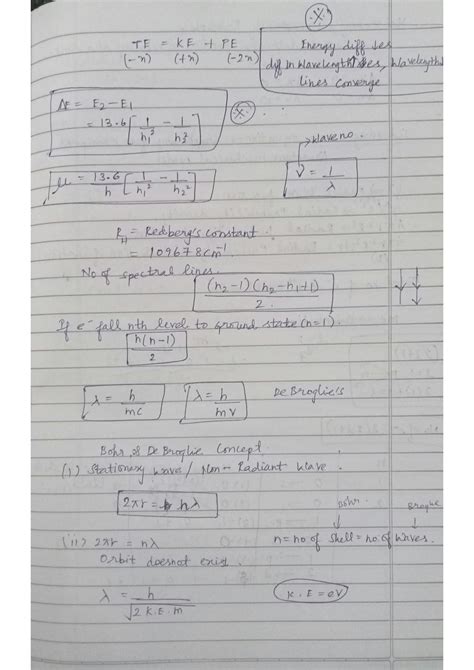 TE = KE + PE
(-x) (+x) (-2x)
Energy diff ↓es
diff in wavelength ↑es, wavelengths
lines converge
ΔE = E2 - E1
= 13.6 [1/n1² - 1/n2²]
= 13.6/h [1/n1² - 1/n2²]
→ Wave no.
ν̄ = 1/λ
RH = Redberg's constant
= 109678 cm⁻¹
No of spectral lines
(n2-1)(n2-n1+1)/2.
If e⁻ fall nth level to ground state (n=1).
n(n-1)/2
λ = h/mc λ = h/mv De Broglie's
Bohr's De Broglie Concept
(i) Stationary wave / Non-Radiant Wave.
2πr = nλ
Bohr. Broglie
(ii) 2πr = nλ n = no of shell = no. of waves.
Orbit doesnot exist.
λ = h/√2 K.E. m K.E = eV